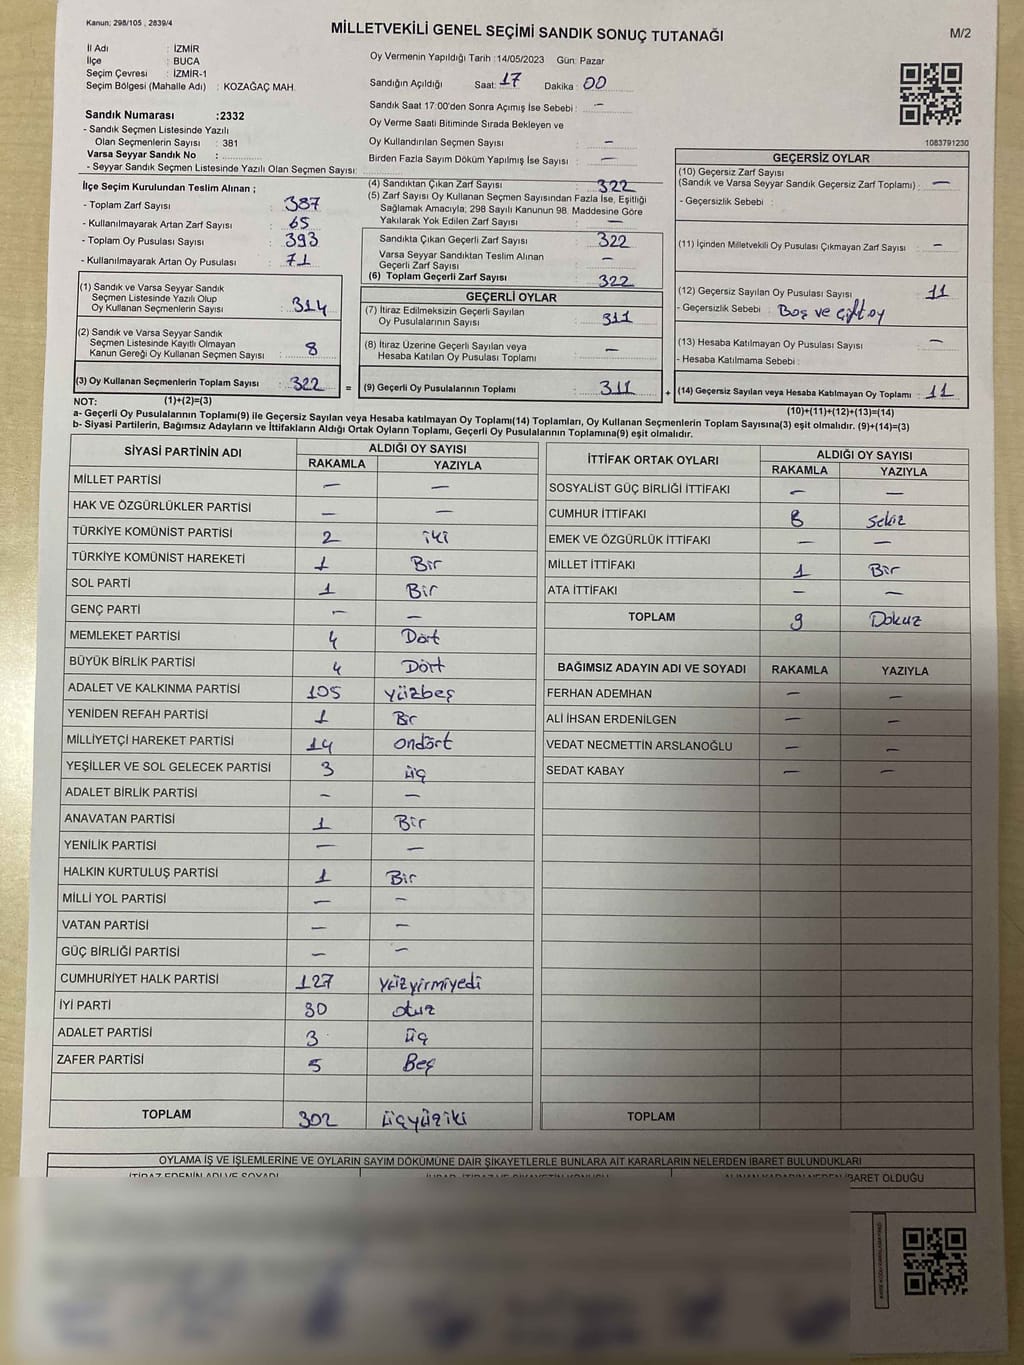 Kanun; 298/105 , 2839/4
MİLLETVEKİLİ GENEL SEÇİMİ SANDIK SONUÇ TUTANAĞI
M/2
İl Adı : İZMİR
İlçe : BUCA
Seçim Çevresi : İZMİR-1
Seçim Bölgesi (Mahalle Adı) : KOZAĞAÇ MAH.
Sandık Numarası :2332
- Sandık Seçmen Listesinde Yazılı
Olan Seçmenlerin Sayısı : 381
Varsa Seyyar Sandık No :
- Seyyar Sandık Seçmen Listesinde Yazılı Olan Seçmen Sayısı:
Oy Vermenin Yapıldığı Tarih :14/05/2023 Gün: Pazar
Sandığın Açıldığı Saat: 17 Dakika : 00
Sandık Saat 17:00'den Sonra Açımış İse Sebebi : —
Oy Verme Saati Bitiminde Sırada Bekleyen ve
Oy Kullandırılan Seçmen Sayısı : —
Birden Fazla Sayım Döküm Yapılmış İse Sayısı : —
1083791230
İlçe Seçim Kurulundan Teslim Alınan ;
- Toplam Zarf Sayısı : 387
- Kullanılmayarak Artan Zarf Sayısı : 65
- Toplam Oy Pusulası Sayısı : 393
- Kullanılmayarak Artan Oy Pusulası : 71
(1) Sandık ve Varsa Seyyar Sandık
Seçmen Listesinde Yazılı Olup
Oy Kullanan Seçmenlerin Sayısı : 314
(2) Sandık ve Varsa Seyyar Sandık
Seçmen Listesinde Kayıtlı Olmayan
Kanun Gereği Oy Kullanan Seçmen Sayısı : 8
(3) Oy Kullanan Seçmenlerin Toplam Sayısı : 322 =
(4) Sandıktan Çıkan Zarf Sayısı : 322
(5) Zarf Sayısı Oy Kullanan Seçmen Sayısından Fazla İse, Eşitliği
Sağlamak Amacıyla; 298 Sayılı Kanunun 98. Maddesine Göre
Yakılarak Yok Edilen Zarf Sayısı : —
Sandıkta Çıkan Geçerli Zarf Sayısı : 322
Varsa Seyyar Sandıktan Teslim Alınan
Geçerli Zarf Sayısı : —
(6) Toplam Geçerli Zarf Sayısı : 322
GEÇERLİ OYLAR
(7) İtiraz Edilmeksizin Geçerli Sayılan
Oy Pusulalarının Sayısı : 311
(8) İtiraz Üzerine Geçerli Sayılan veya
Hesaba Katılan Oy Pusulası Toplamı : —
(9) Geçerli Oy Pusulalarının Toplamı : 311 +
GEÇERSİZ OYLAR
(10) Geçersiz Zarf Sayısı
(Sandık ve Varsa Seyyar Sandık Geçersiz Zarf Toplamı) : —
- Geçersizlik Sebebi :
(11) İçinden Milletvekili Oy Pusulası Çıkmayan Zarf Sayısı : —
(12) Geçersiz Sayılan Oy Pusulası Sayısı : 11
- Geçersizlik Sebebi : Boş ve çift oy
(13) Hesaba Katılmayan Oy Pusulası Sayısı : —
- Hesaba Katılmama Sebebi :
(14) Geçersiz Sayılan veya Hesaba Katılmayan Oy Toplamı : 11
NOT: (1)+(2)=(3) (10)+(11)+(12)+(13)=(14)
a- Geçerli Oy Pusulalarının Toplamı(9) ile Geçersiz Sayılan veya Hesaba katılmayan Oy Toplamı(14) Toplamları, Oy Kullanan Seçmenlerin Toplam Sayısına(3) eşit olmalıdır. (9)+(14)=(3)
b- Siyasi Partilerin, Bağımsız Adayların ve İttifakların Aldığı Ortak Oyların Toplamı, Geçerli Oy Pusulalarının Toplamına(9) eşit olmalıdır.
SİYASİ PARTİNİN ADI ALDIĞI OY SAYISI
RAKAMLA YAZIYLA
MİLLET PARTİSİ — —
HAK VE ÖZGÜRLÜKLER PARTİSİ — —
TÜRKİYE KOMÜNİST PARTİSİ 2 iki
TÜRKİYE KOMÜNİST HAREKETİ 1 Bir
SOL PARTİ 1 Bir
GENÇ PARTİ — —
MEMLEKET PARTİSİ 4 Dört
BÜYÜK BİRLİK PARTİSİ 4 Dört
ADALET VE KALKINMA PARTİSİ 105 yüzbeş
YENİDEN REFAH PARTİSİ 1 Bir
MİLLİYETÇİ HAREKET PARTİSİ 14 ondört
YEŞİLLER VE SOL GELECEK PARTİSİ 3 üç
ADALET BİRLİK PARTİSİ — —
ANAVATAN PARTİSİ 1 Bir
YENİLİK PARTİSİ — —
HALKIN KURTULUŞ PARTİSİ 1 Bir
MİLLİ YOL PARTİSİ — —
VATAN PARTİSİ — —
GÜÇ BİRLİĞİ PARTİSİ — —
CUMHURİYET HALK PARTİSİ 127 yüzyirmiyedi
İYİ PARTİ 30 otuz
ADALET PARTİSİ 3 üç
ZAFER PARTİSİ 5 Beş
TOPLAM 302 üçyüziki
İTTİFAK ORTAK OYLARI ALDIĞI OY SAYISI
RAKAMLA YAZIYLA
SOSYALİST GÜÇ BİRLİĞİ İTTİFAKI — —
CUMHUR İTTİFAKI 8 Sekiz
EMEK VE ÖZGÜRLÜK İTTİFAKI — —
MİLLET İTTİFAKI 1 Bir
ATA İTTİFAKI — —
TOPLAM 9 Dokuz
BAĞIMSIZ ADAYIN ADI VE SOYADI RAKAMLA YAZIYLA
FERHAN ADEMHAN — —
ALİ İHSAN ERDENİLGEN — —
VEDAT NECMETTİN ARSLANOĞLU — —
SEDAT KABAY — —
TOPLAM
OYLAMA İŞ VE İŞLEMLERİNE VE OYLARIN SAYIM DÖKÜMÜNE DAİR ŞİKAYETLERLE BUNLARA AİT KARARLARIN NELERDEN İBARET BULUNDUKLARI
İTİRAZ EDENİN ADI VE SOYADI
İBARET OLDUĞU